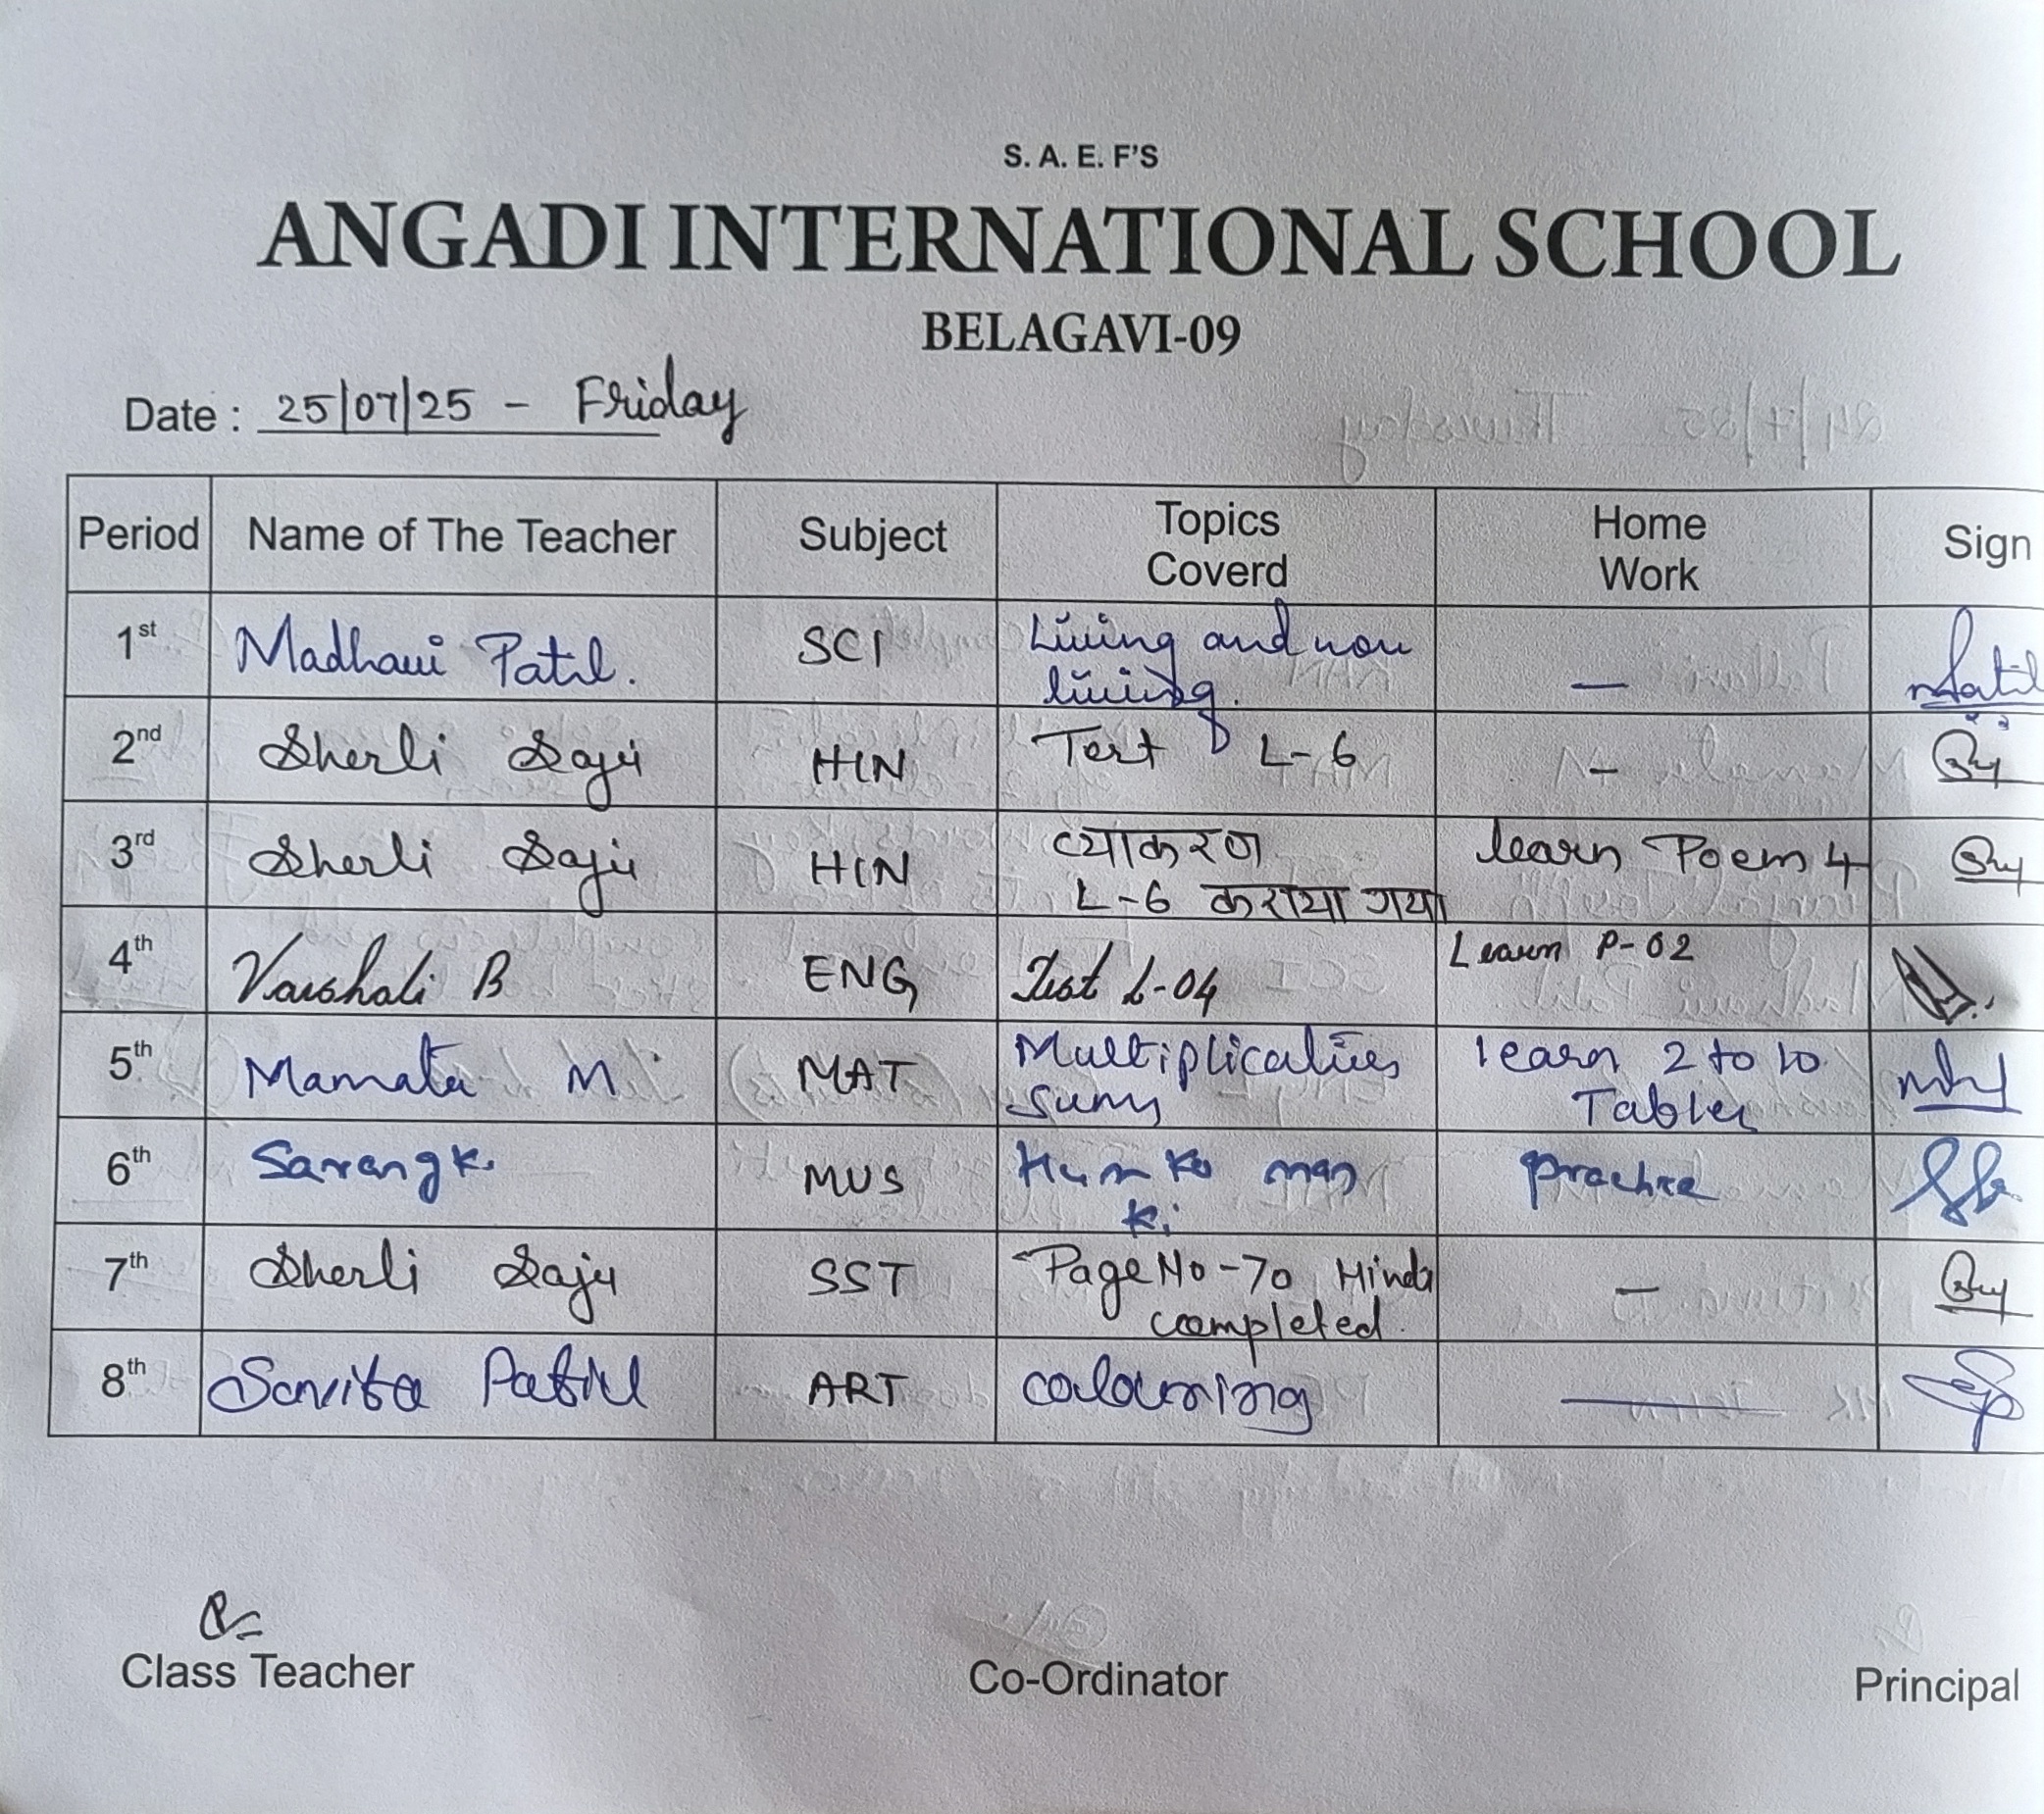 S. A. E. F'S
ANGADI INTERNATIONAL SCHOOL
BELAGAVI-09
Date : 25/07/25 - Friday
Period Name of The Teacher Subject Topics Coverd Home Work Sign
1st Madhavi Patil. SCI Living and non living. —
2nd Sherli Saju HIN Test L-6 -
3rd Sherli Saju HIN व्याकरण L-6 कराया गया learn Poem 4
4th Varshali B ENG Test L-04 Learn P-02
5th Mamata M MAT Multiplications Sums learn 2 to 10 Tables
6th Sarang K. MUS Hum Ko man Ki practice
7th Sherli Saju SST Page No-70 Hindi completed. —
8th Savita Patil ART colouring —
Class Teacher Co-Ordinator Principal